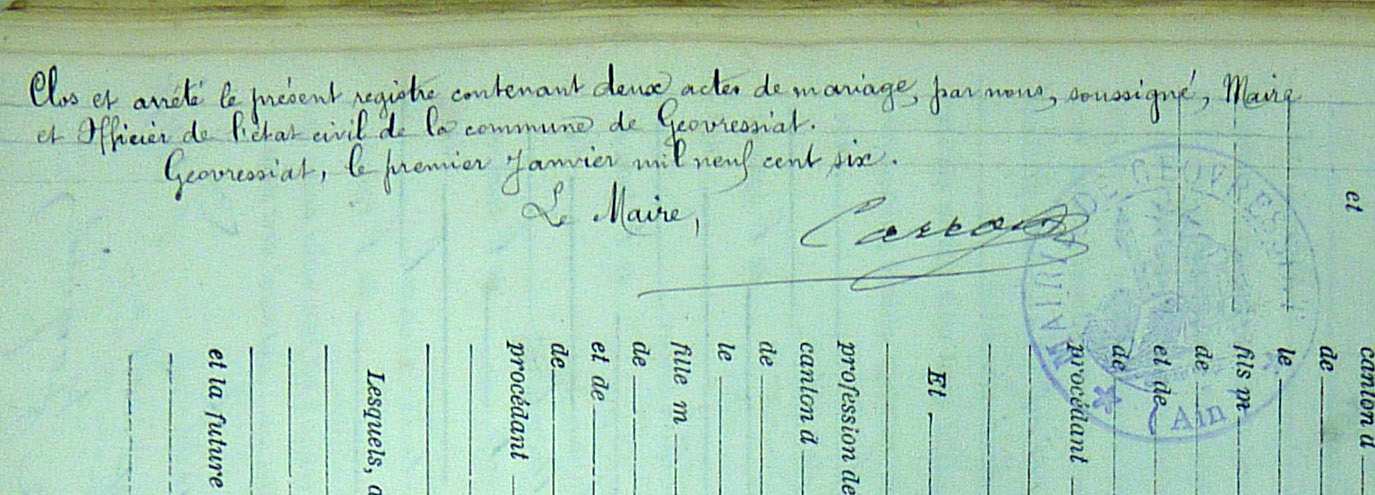 Clos et arrêté le présent registre contenant deux actes de mariage, par nous, soussigné, Maire
et Officier de l'état civil de la commune de Geovressiat.
Geovressiat, le premier Janvier mil neuf cent six.
Le Maire,
MAIRIE DE GEOVRESSIAT
(Ain)
et
canton d
de
le
fils m
de
et de
de
procédant
Et
profession de
canton d
de
le
fille m
de
et de
de
procédant
Lesquels, a
et la future